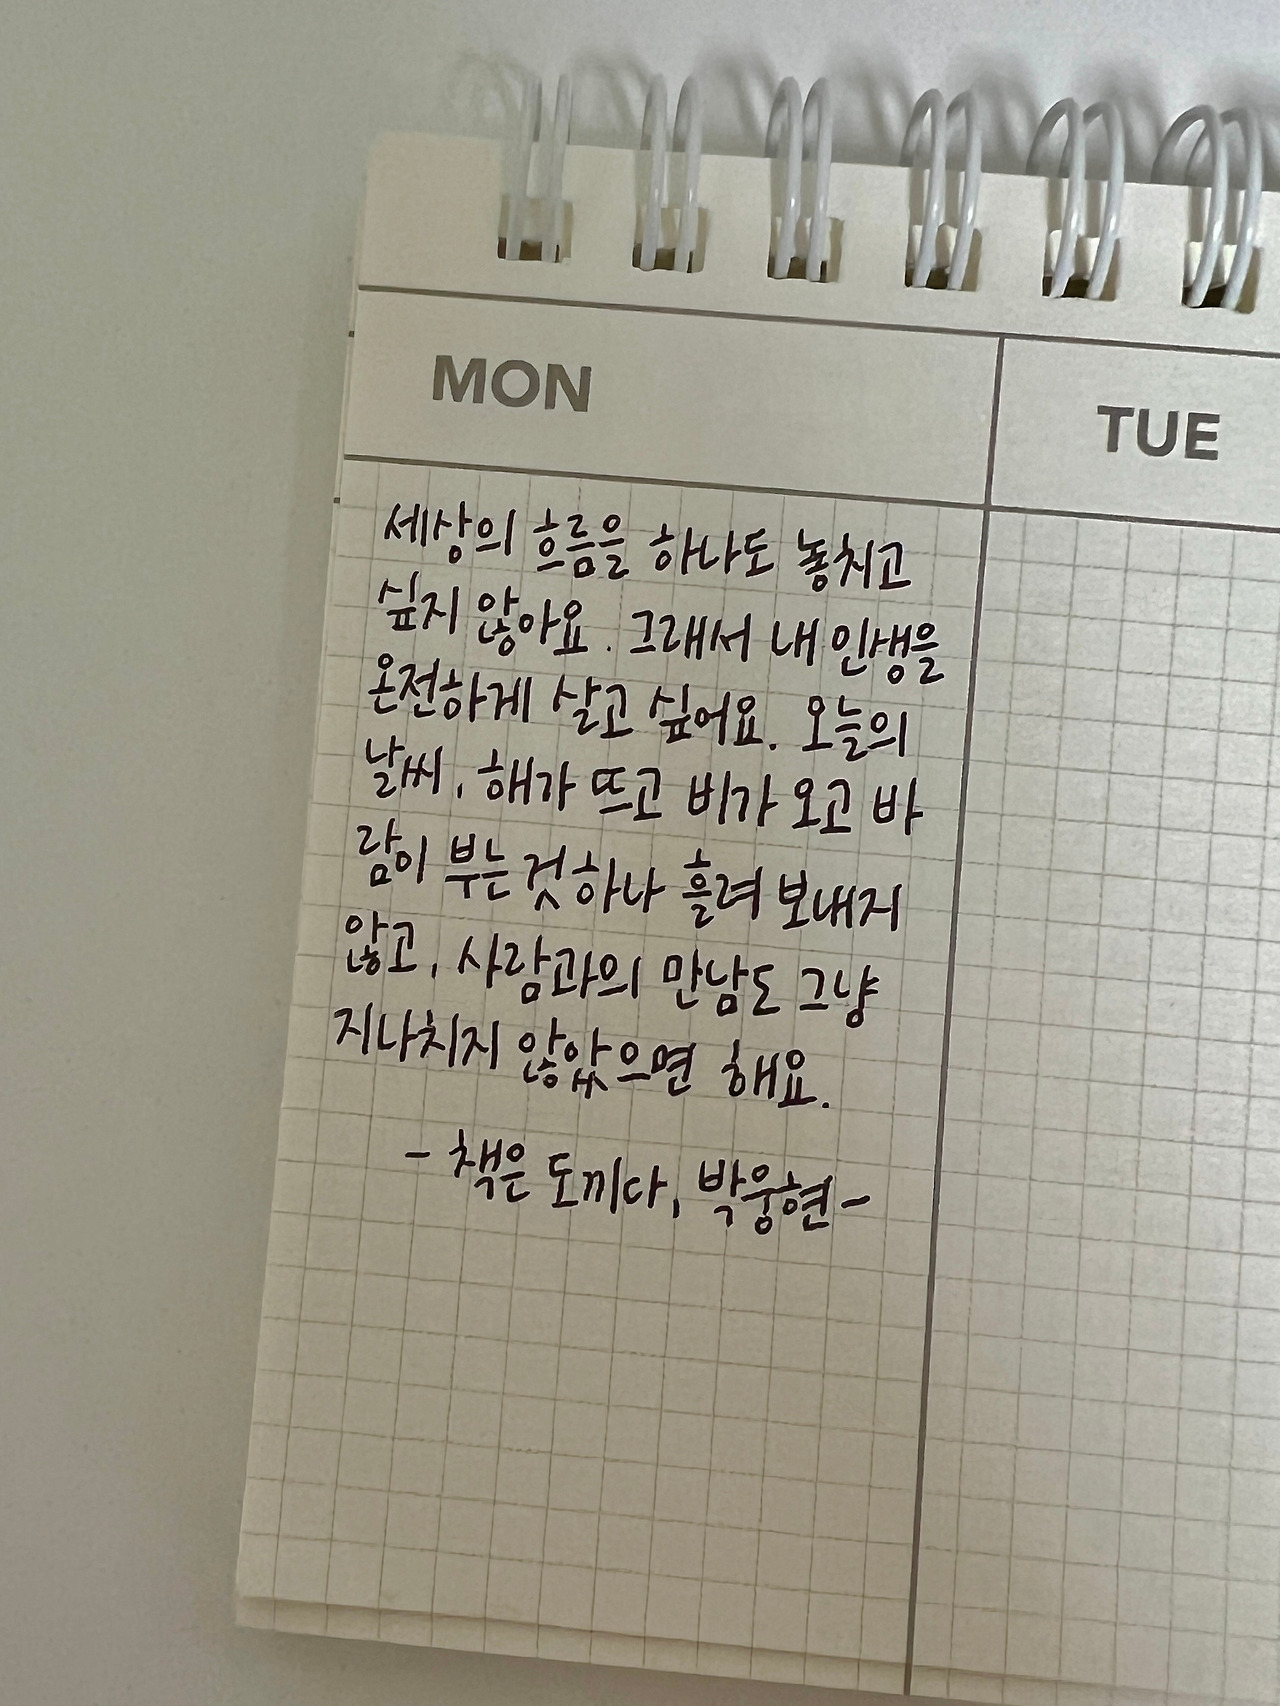 MON
TUE
세상의 흐름을 하나도 놓치고
싶지 않아요. 그래서 내 인생을
온전하게 살고 싶어요. 오늘의
날씨, 해가 뜨고 비가 오고 바
람이 부는 것 하나 흘려 보내지
않고, 사람과의 만남도 그냥
지나치지 않았으면 해요.
- 책은 도끼다, 박웅현-